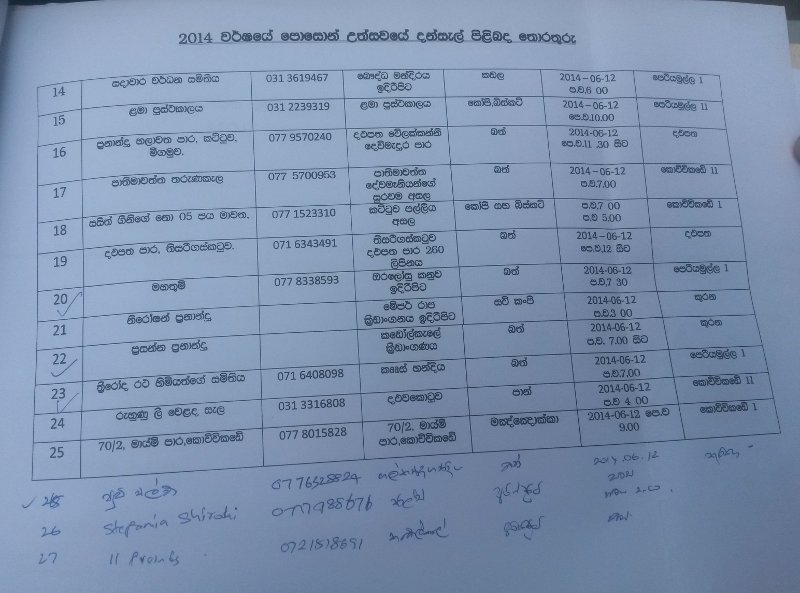 2014 වර්ෂයේ පොසොන් උත්සවයේ දන්සැල් පිළිබද තොරතුරු
14 සදාචාර වර්ධන සමිතිය 031 3619467 බෞද්ධ මන්දිරය ඉදිරිපිට කඩල 2014-06-12 ප.ව.6 00 පෙරියමුල්ල 1
15 ළමා පුස්ථකාලය 031 2239319 ළමා පුස්ථකාලය කෝපි,බිස්කට් 2014-06-12 පෙ.ව.10.00 පෙරියමුල්ල 11
16 ප්‍රනාන්දු හලාවත පාර, කට්ටුව. මීගමුව. 077 9570240 දළුපත වේලක්කන්නි දෙව්මැදුර පාර බත් 2014-06-12 පෙ.ව.11 .30 සිට දළුපත
17 පාතිමාවත්ත තරුණකැල 077 5700953 පාතිමාවත්ත දේවමෑනියන්ගේ සුරුවම අසල බත් 2014-06-12 ප.ව.7.00 කොච්චිකඩේ 11
18 සජිත් ගිනිගේ නො 05 පය මාවත. 077 1523310 කට්ටුව පල්ලිය අසල කෝපි සහ බිස්කට් ප.ව.7 00 ප.ව 5.00 කොච්චිකඩේ 1
19 දළුපත පාර, තිඹිරිගස්කටුව. 071 6343491 තිඹිරිගස්කටුව දළුපත පාර 260 ලිපිනය බත් 2014-06-12 පෙ.ව.12 සිට දළුපත
20 මහතුමි 077 8338593 ඔරලෝසු කනුව ඉදිරිපිට බත් 2014-06-12 ප.ව.7 30 පෙරියමුල්ල 1
21 නිරෝෂන් ප්‍රනාන්දු මේජර් රාජ ක්‍රීඩාංගනය ඉදිරිපිට සව් කැංජි 2014-06-12 ප.ව.3 00 කුරන
22 ප්‍රසන්න ප්‍රනාන්දු කඩෝල්කැලේ ක්‍රීඩාංගණය බත් 2014-06-12 ප.ව. 7.00 සිට කුරන
23 ත්‍රිරෝද රථ හිමියන්ගේ සමිතිය 071 6408098 හන්දිය බත් 2014-06-12 ප.ව.7.00 පෙරියමුල්ල 1
24 රුහුණු ලී වෙළද සැල 031 3316808 දළුවකොටුව පාන් 2014-06-12 ප.ව 4 00 කොච්චිකඩේ 11
25 70/2, මායිම් පාර,කොච්චිකඩේ 077 8015828 70/2, මායිම් පාර,කොච්චිකඩේ මඤ්ඤොක්කා 2014-06-12 පෙ.ව 9.00 කොච්චිකඩේ 1
0776528824 2014.06.12
26 Stepania Shiroki
27 0721518691